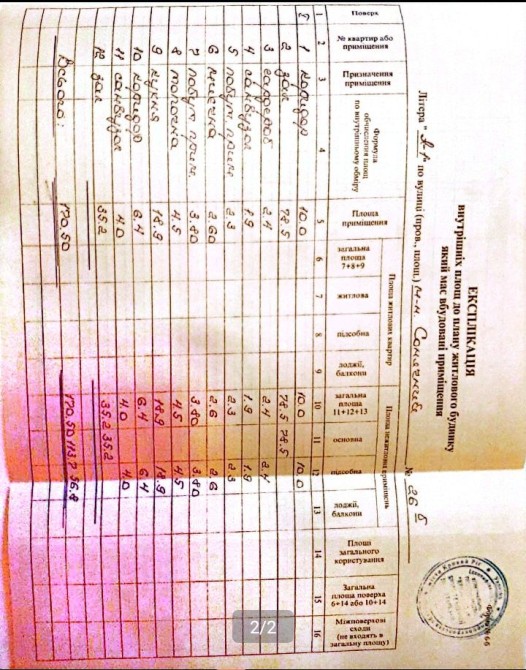 ЕКСПЛІКАЦІЯ
внутрішніх площ до плану житлового будинку
який має вбудовані приміщення
Літера " А-1 по вулиці (пров., площ.) м-н. Сонячний № 26 Б
Поверх
№ квартир або приміщення
Призначення приміщення
Формула обчислення площ по внутрішньому обміру
Площа приміщення
Площа житлових квартир
загальна площа 7+8+9
житлова
підсобна
лоджії, балкони
Площа нежитлових приміщень
загальна площа 11+12+13
основна
підсобна
лоджії, балкони
Площі загального користування
Загальна площа поверха 6+14 або 10+14
Міжповерхові сходи (не входять в загальну площу)
1 2 3 4 5 6 7 8 9 10 11 12 13 14 15 16
1 коридор 10.0 10.0 10.0
2 зал 78.5 78.5 78.5
3 гардероб 2.4 2.4 2.4
4 санвузол 1.9 1.9 1.9
5 побут. прим. 2.3 2.3 2.3
6 мийочна 2.60 2.6 2.6
7 побут. прим. 3.80 3.80 3.80
8 топочна 4.5 4.5 4.5
9 кухня 18.9 18.9 18.9
10 коридор 6.4 6.4 6.4
11 санвузол 4.0 4.0 4.0
12 зал 35.2 35.2 35.2
Всього: 170,50 170,50 113,7 56.8
2/2